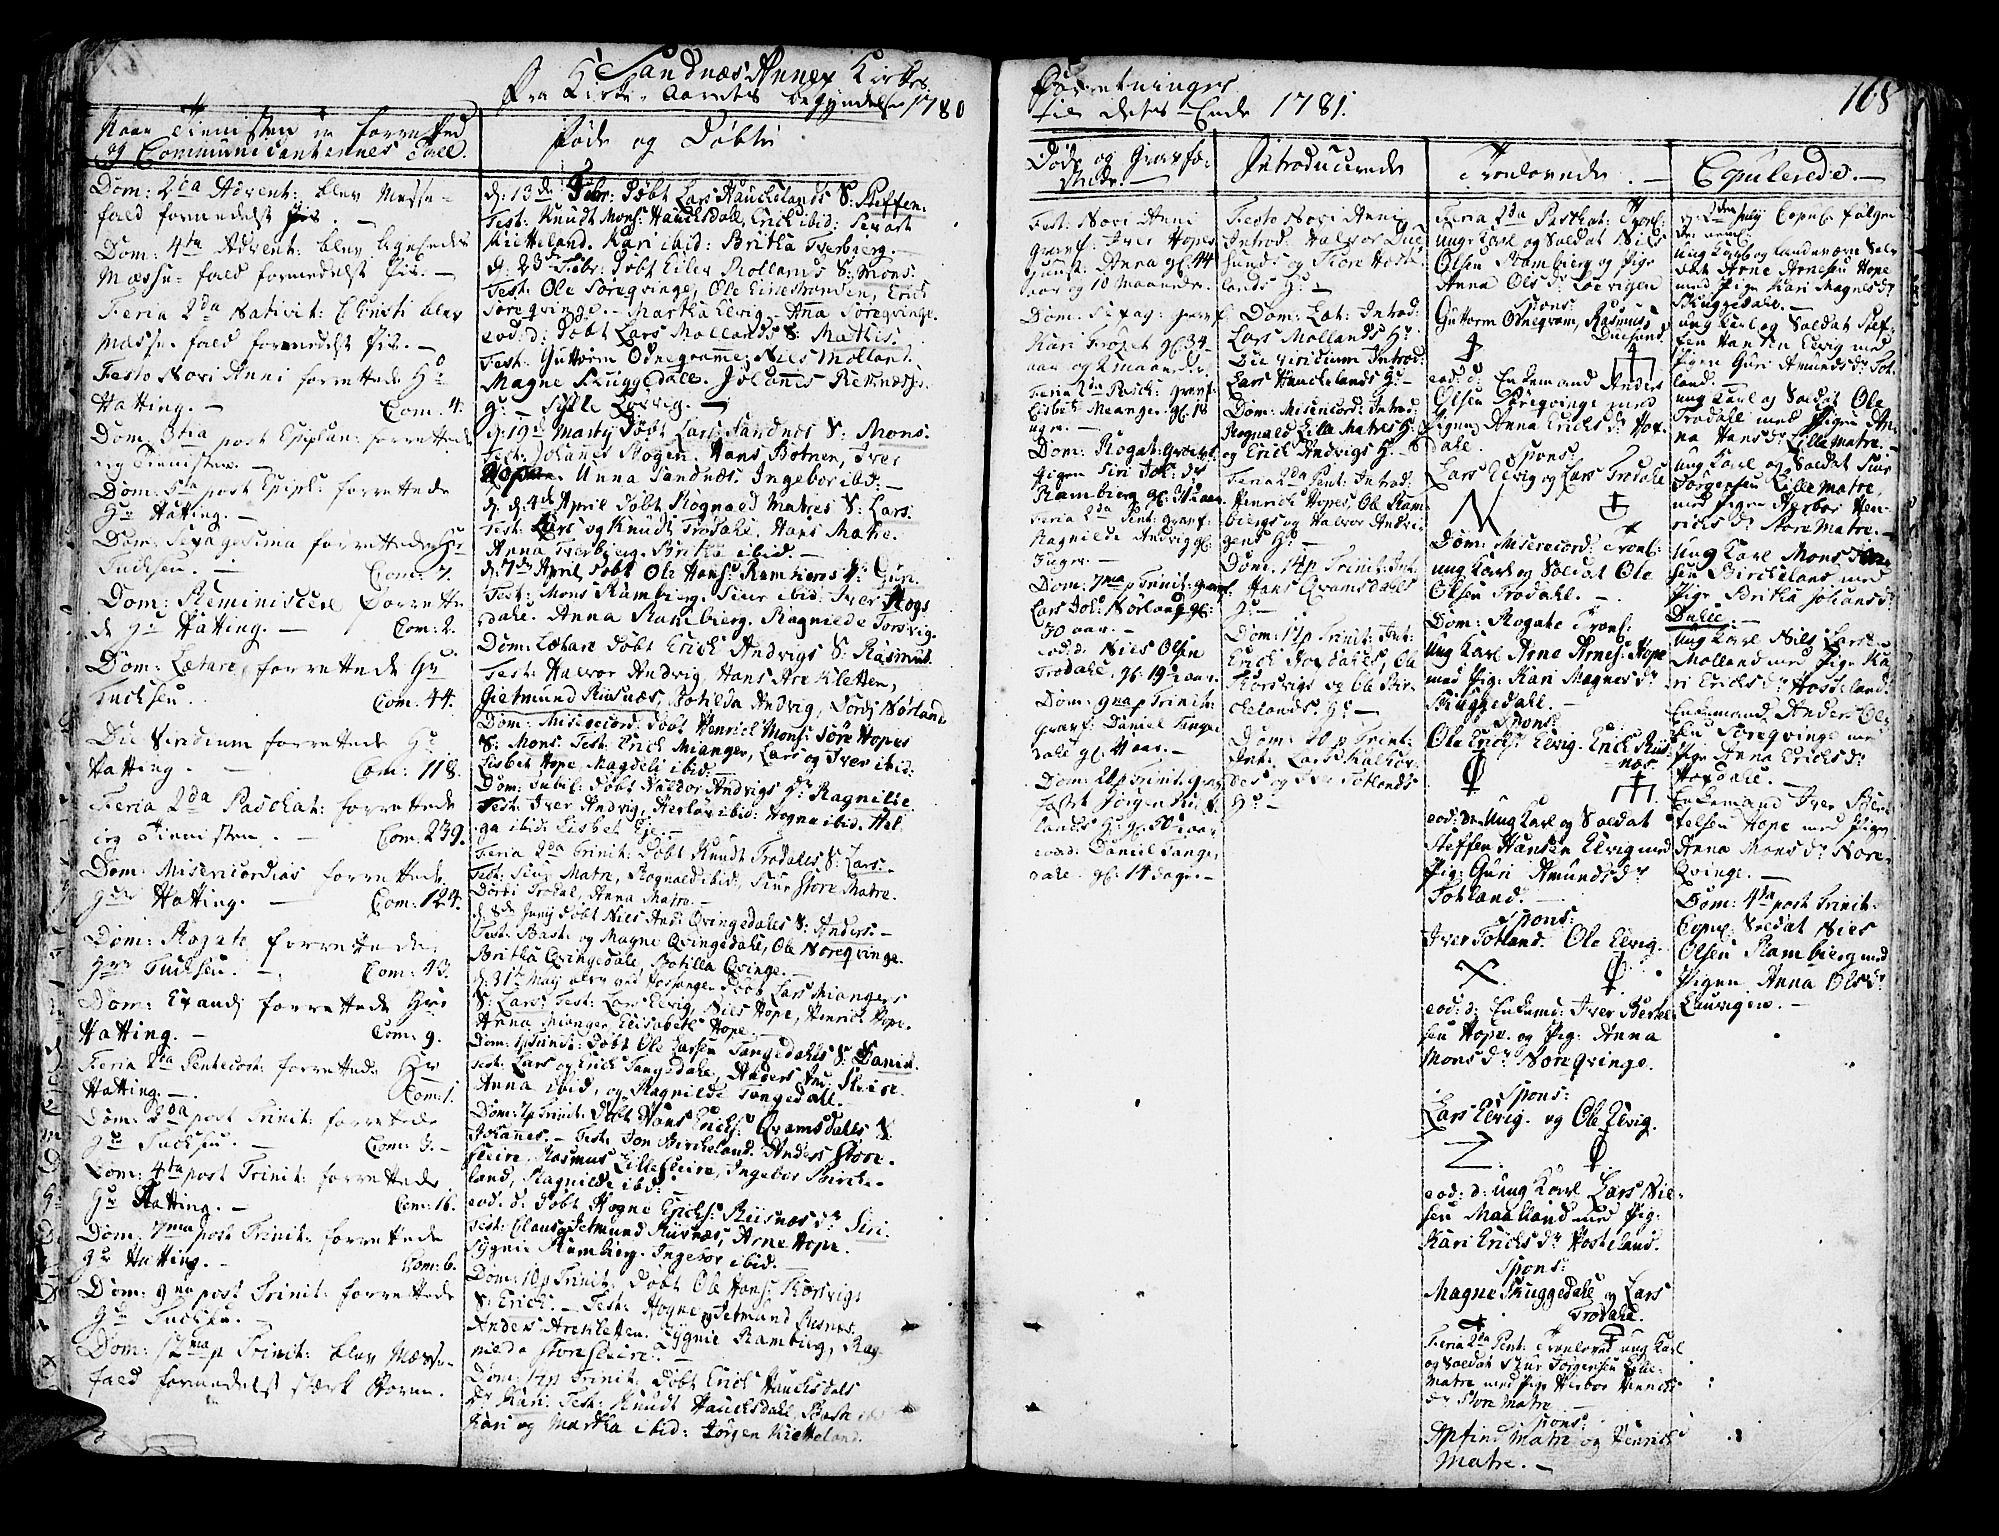 Sandnæs Annex Kirkes
Fra Kirke-Aarets begyndelse 1780
Forretninger
til dets Ende 1781.
168
Naar Tienisten er forretted
og Communicanternes Tall.
Dom: 2da Advent: blev Messe-
fald formedelst Iis. -
Dom: 4ta Advent: blev ligeledes
Mæsse-fald formedelst Iis. -
Feria 2da Nativit: Christi blev
Mæsse-fald formedelst Iis. -
Festo Novi Anni forrettede Hr
Hatting. - Com: 4.
Dom: 3tia post Epiphan: forrettede
ieg Tienisten. -
Dom: 5ta post Epiph: forrettede
Hr Hatting. -
Dom: Sexagesima forrettede Hr
Tuchsen. - Com: 7.
Dom: Reminiscere forrette
de Hr Hatting. - Com: 2.
Dom: Lætare forrettede Hr
Tuchsen. Com: 44.
Die Viridium forrettede Hr
Hatting. - Com: 118.
Feria 2da Paschat: forrettede
ieg Tienisten. - Com: 239.
Dom: Misericordias forrettede
Hr Hatting. - Com: 124.
Dom: Rogate forrettede
Hr Tuchsen. - Com: 43.
Dom: Exaudj forrettede Hr
Hatting. - Com: 9.
Feria 2da Pentecost: forrettede Hr
Hatting. - Com: 1.
Dom: 2da post Trinit: forrettede
Hr Tuchsen. - Com: 3. -
Dom: 4ta post Trinit: forrettede
Hr Hatting. - Com: 16.
Dom: 7ma post Trinit: forrettede
Hr Hatting. - Com: 6.
Dom: 9na post Trinit: forrettede
Hr Tuchsen. -
Dom: 12ma p Trinit: blev Mæsse-
fald formedelst stærk Storm.
Føde og Døbte
d: 13de Febr: Døbt Lars Hauckelands S: Steffen.
Test: Knudt Mons: Hauchsdall, Erich ibid: Sevart
Kietteland. Kari ibid: Britha Tverberg. -
d: 23de Febr: Døbt Eiler Mollands S: Mons.
Test: Ole Søreqvinge, Ole Einestranden, Erich
Søreqvinge. - Martha Elvig. Ana Søreqvinge.
eod: d: Døbt Lars Mollands S: Mathis.
Test: Guttorm Odnegrame: Niels Molland.
Magne Skuggedale. Johannis
d: 19de Martj Døbt Lars Sandnes S: Mons.
Test: Johanes Skogen. Hans Botnen, Iver
Anna Sandnæs. Ingebor ibid: -
d: 4de April Døbt Rognald Matres S: Lars.
Test: Lars og Knudt Trodahl. Hans Matre.
Anna Tverberg. Britha ibid: -
d: 7de April Døbt Ole Hans: Rambiergs dr Guri.
Test: Mons Ramberg. Siur ibid: Iver Skogs
dahl. Anna Ramberg. Ragnilde Torsvig.
Dom: Lætare Døbt Erich Andvigs S: Rasmus.
Test: Halvor Andvig, Hans Arekletten,
Gietmund Riisnæs, Botilda Andvig, Dordj Nørland.
Dom: Misericord: Døbt Henrich Mons: Søre Hopes
S: Mons. Test: Erich Mianger, Lars og Iver ibid:
Lisbet Hope, Magdeli ibid:
Dom: Jubil: Døbt Haldor Andvigs dr Ragnilde.
Test: Iver Andvig, Herlov ibid: Hogne ibid. Hel-
ga ibid: Lisbet Eje. -
Feria 2da Trinit: Døbt Knudt Trodales S: Lars.
Test: Siur Matre, Rognald ibid: Siur Store Matre.
Dordi Trodal, Anna Matre. -
d: 8de Junij Døbt Niels And: Qvingedales S: Anders. -
Test: Bast: og Magne Qvingedale, Ole Noreqvinge.
Britha Qvingedale, Botilla Qvinge. -
d: 31te Maij Døbt Lars Miangers
S: Lars. Test: Lars Elvig, Niels Hope, Henrich Hope.
Anna Mianger Elisabeth Hope. -
Døbt Ole Larsen Tangedahls S: Daniel.
Test: Lars og Erich Tangedahl, Anders Sleire.
Anna ibid, og Ragnilde Tangedall. -
Dom: 7 p Trinit: Døbt Hans Erichs: Qvamsdales S:
Johanes. - Test: Jon Birckeland. Anders Store-
sleire, Rasmus Lillesleire, Ingebor Bircke-
land, Ragnilde ibid:
eod. d. Døbt Hogne Erichs: Riisnæs dr Siri.
Test: Claus og Jetmund Riisnæs, Arne Hope.
Sygnie Ramberg. Ingebor ibid. -
Dom: 10 p Trinit: Døbt Ole Hans: Korsvigs
S: Erich. - Test: Hogne og Jetmund Riisnes.
Anders Arekletten. Sygnie Ramberg, Rag-
nilda Storesleire. -
Dom: 14 p Trinit: Døbt Erich Hauchsdals
dr Kari. Test: Knudt Hauchsdahl, Bast
Kari og Martha ibid: Jørgen Kietteland.
Døde og Gravfæ-
stede. -
Fest: Novi Anni
Gravf: Iver Hopes
Anna gl. 44
aar og 10 maaneder.
Dom: Sexag: Gravf:
Kari Trodal gl. 34
aar og maaneder.
Feria 2da Pasch: Gravf:
Lisbeth Meanger. gl. 18
uger. -
Dom: Rogat: Gravf:
Pigen Siri Joh: dr
Ramberg gl. aar.
Feria 2da Pent: Gravf:
Ragnilde Andvig gl:
3 uger. -
Dom: 7ma p Trinit: Gravf:
Lars Joh: Nørland gl:
70 aar. -
eod: d: Niels Olsen
Trodahl, gl: 19½ aar.
Dom: 9na p Trinit:
Gravf: Daniel Tange
dale gl. 4 aar. -
Dom: 20 p Trinit: Grav-
fæstet Jørgen
lands gl. aar
eod: d: Daniel Tange-
dahl. gl. 14 dage. -
Introducerede
Festo Novi Anni
Introd: Halvor Due
sunds og Tiore Hosse
lands H: -
Dom: Læt: Introd:
Lars Mollands H:
Die Viridium Introd:
Lars Hauckelands H: -
Dom: Misericord: Introd:
Rognald Lille Matres H:
og Erich Andvigs H: -
Feria 2da Pent: Introd:
Henrich Hopes, Ole Ram
biergs og Halvor Andvi
gens H: -
Dom: 14 p Trinit: Int:
Hans Qvamsdales
H: -
Dom: 17 p Trinit: Int:
Erich Hoxdales, Ole
Korsvigs og Ole Bir-
ckelands H: -
Dom: 20 p Trinit:
Int: Lars
des og Iver Totlands
H: -
Trolovede. -
Feria 2da Paschat: Trol:
Ung Karl og Soldat Niels
Olsen Ramberg og Pige
Anna Ols dr Løevigen
Spons:
Guttorm Odnegram, Rasmus
Duesund.
eod: d: Enkemand Anders
Olsen Søreqvinge med
Pigen Anna Erichs dr Hox-
dale.
Spons:
Lars Elvig og Lars Trodahl
Dom: Misericord: Trol:
ung Karl og Soldat Ole
Olsen Trodahl. -
Dom: Rogate Trol:
Ung Karl Arne Arnes: Hope
med Pig: Kari Magnes dr
Skuggedall. -
Spons:
Ole Erichs: Elvig. Erich Riis
næs.
eod: d: Ung Karl og Soldat
Steffen Hansen Elvig med
Pig: Guri Amunds dr
Totland. -
Spons:
Iver Totland. Ole Elvig.
eod: d: Enkemd: Iver Bertel
sen Hope og Pig: Anna
Mons dr Noreqvinge.
Spons:
Lars Elvig. og Ole Elvig.
eod: d: ung Karl Lars Niel-
sen Maalland med Pig:
Kari Erichs dr Hosteland.
Spons:
Magne Skuggedahl og Lars
Trodahl.
Feria 2da Pent: Trolovед ung Karl
og Soldat Siur Jørgensen Lille
Matre med Pige Herbor Henrichs
dr Store Matre. -
Spons:
Apfind Matre og Henrich
Matre. -
Copulerede. -
d: 2den Julij Copul: følgen
de neml:
ung Karl og Landeværn Sol-
dat Arne Arnesen Hope
med Pige Kari Magnes dr
Skuggedale. -
ung Karl og Soldat Stef-
fen Hansen Elvig med
Pigen Guri Amunds dr Tot-
land. -
ung Karl og Soldat Ole
Trodall med Pigen An-
na Hans dr Lille Matre. -
ung Karl og Soldat Siur
Jørgensen Lille Matre,
med Pigen Herbor Hen-
richs dr Store Matre. -
Ung Karl Mons
sen Birckeland med
Pige Britha Johans dr
Dahle. -
ung Karl Niels Lars:
Molland med Pige Ka-
ri Erichs dr Hosseland.
Enkemand Anders Ol-
sen Søreqvinge med
Pige Anna Erichs dr
Hoxdahl. -
Enkemand Iver Ber-
telsen Hope med Pige
Anna Mons dr Nore-
Qvinge. -
Dom: 4ta post Trinit:
Copul: Soldat Niels
Olsen Ramberg med
Pigen Anna Ols dr
Lauvigen. -